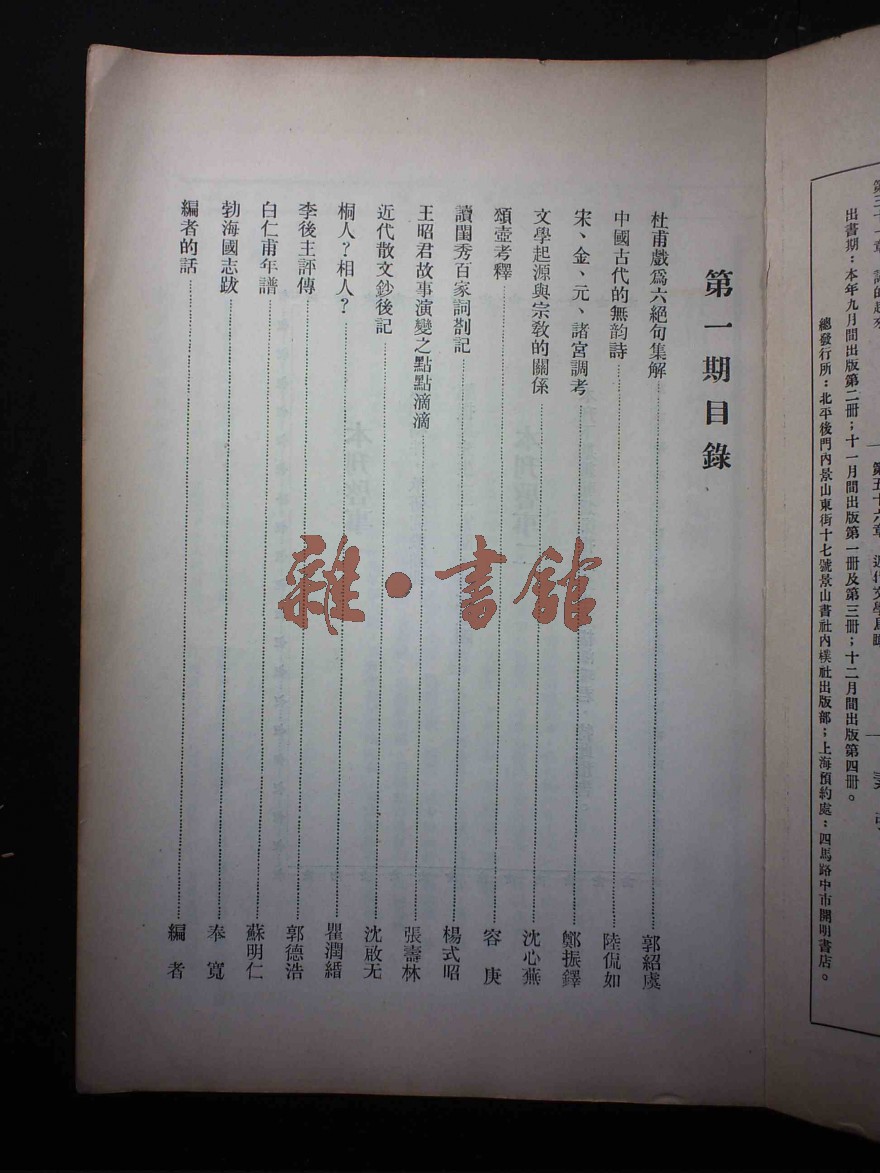 第三十一章
第五十六章 近代文學鳥瞰
出書期：本年九月間出版第二册；十一月間出版第一册及第三册；十二月間出版第四册。
總發行所：北平後門內景山東街十七號景山書社內樸社出版部；上海預約處：四馬路中市開明書店。
第一期目錄
杜甫戲爲六絕句集解……郭紹虞
中國古代的無韵詩……陸侃如
宋、金、元、諸宮調考……鄭振鐸
文學起源與宗敎的關係……沈心蕪
頌壺考釋……容庚
讀閨秀百家詞劄記……楊式昭
王昭君故事演變之點點滴滴……張壽林
近代散文鈔後記……沈啟无
桐人？相人？……瞿潤緡
李後主評傳……郭德浩
白仁甫年譜……蘇明仁
勃海國志跋……奉寬
編者的話……編者
雜·書館
本刊啓事二
本刊啓事